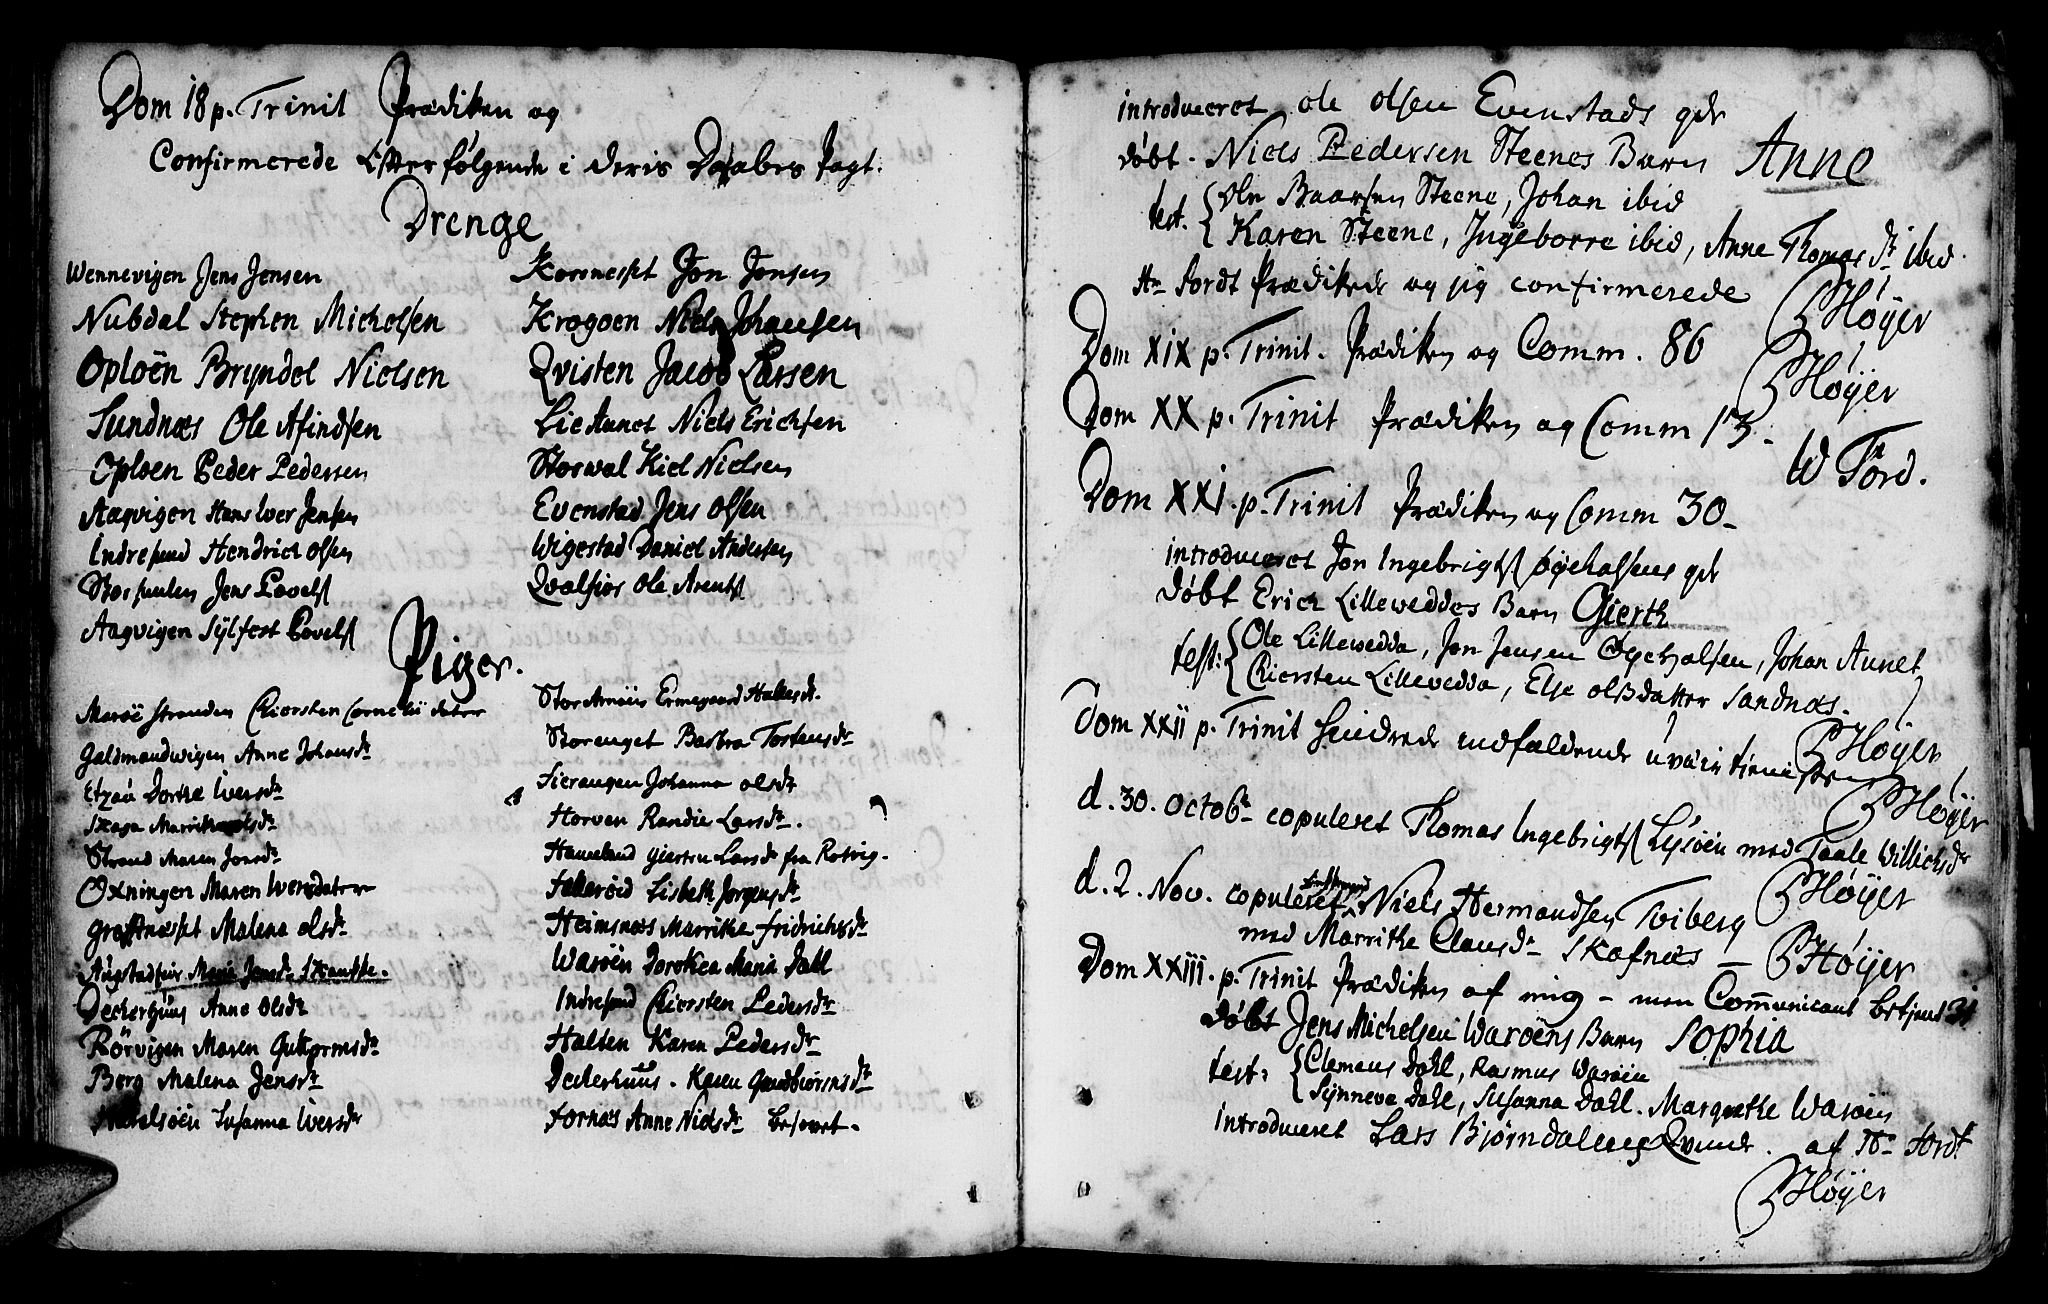 Dom 18 p. Trinit Prædiken og
Confirmerede Efterfølgende i deris Daabes Pagt.
Drenge
Wennevigen Jens Jensen
Nubdal Stephen Michelsen
Oploën Bryndel Nielsen
Sundnæs Ole Afindsen
Oploen Peder Pedersen
Aagvigen Hans Iver Jensen
Indresund Hendrich Olsen
Jens Povels
Aagvigen Sÿlfest Povels
Korsneset Jon Jonsen
Krogoen Niels Johansen
Qvisten Jacob Larsen
Lie Aunet Niels Erichsen
Storwal Kiel Nielsen
Evenstad Jens Olsen
Wigestad Daniel Andersen
Qvalfior Ole Arents
Piger.
Stranden Chiersten Cornelii dater
Galdmandwigen Anne Johansdr
Dorthe Iversdr
Skaga
Strand Maren Jonsdr
Oxningen Maren Iversdater
Malena Olsdr
Marie Jensdr Skanske.
Deckerhuus Anne Olsdr
Rörvigen Maren Guttormsdr
Berg Malena Jensdr
Susanna Iversdr
Stor Arnöin Ermegaard
Storenget Barbra Tostensdr
Fierangen Johanna Olsdr
Horven Randie Larsdr.
Hameland Giertru Larsdr fra Rotvig.
Lisbeth Jørgensdr
Heimsnæs Marrithe Fridrichsdr
Waröen Dorothea Maria Dahl
Indresund Chiersten Pedersdr
Halten Karen Pedersdr
Deckerhuus. Karen Gundbiörnsdr
Fornæs Anne Nielsdr
introduceret Ole Olsen Evenstads
døbt. Niels Pedersen Steenes Barn Anne
test. Ole Baarsen Steene, Johan ibid
Karen Steene, Ingeborre ibid, Anne Thomasdr ibid.
Hr Fordt Prædikede og jeg confirmerede
Høyer
Dom XIX p. Trinit. Prædiken og Comm. 86
Høyer
Dom XX p. Trinit Prædiken og Comm 13.
W Ford.
Dom XXI. p. Trinit Prædiken og Comm 30.
introduceret Jon Ingebrigts
døbt Erich Lilleweddes Barn Gierth
test: Ole Lillewedda, Jon Jensen Oyehalsen, Johan Aunet
Chiersten Lillevedda, Else Olsdatter Sandnæs.
Høyer
Dom XXII p. Trinit hindrede indfaldende uvæir tienisten
Høyer
d. 30. Octobr copuleret Thomas Ingebrigts Lysöen med Willichsdr
Høyer
d. 2. Nov. copuleret Niels Hermandsen Tviberg
med Marrithe Clausdr Skafnæs — Høyer
Dom XXIII. p. Trinit Prædiken af mig – men Communicant betjent 31
døbt Jens Michelsen Waröens Barn Sophia
test: Clemens Dahl, Rasmus Waröen
Synneva Dahl, Susanna Dahl. Margrethe Waröen
introduceret Lars Bjørndalens Qvinde. af Hr Fordt
Høyer